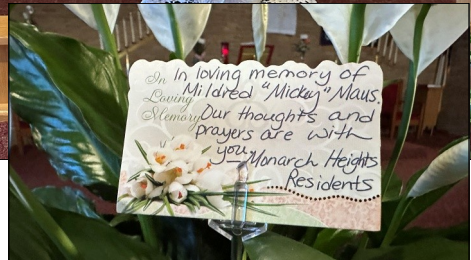 In
Loving
Memory
In loving memory of
Mildred "Mickey" Maus.
Our thoughts and
prayers are with
you—Monarch Heights
Residents